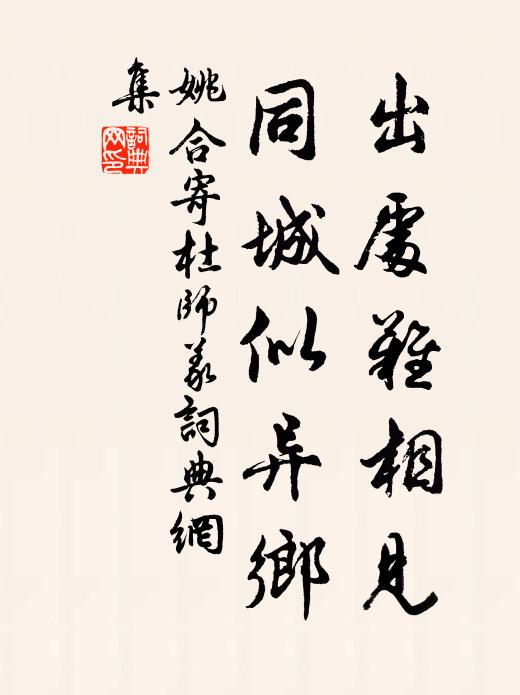 出處難相見
同城似异鄉
姚合寄杜師義詞典網
集
詞典網印